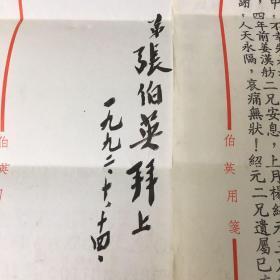 中，不幸
四年前姜漢舫二兄安息，上月楊紹元二
謝，人天永隔，哀痛無狀！紹元二兄遺屬已
伯英用箋
弟張伯英拜上
一九九二、十、十四、
伯英用箋